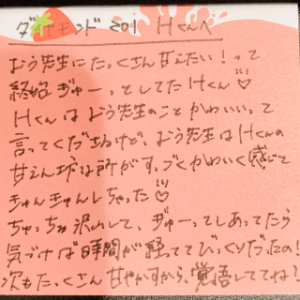 ダイヤモンド201 Hくんへ
おう先生にたっくさん甘えたい！って
終始ぎゅーっとしてたHくん
Hくんはおう先生のことかわいいって
言ってくださるけど、おう先生はHくんの
甘えん坊な所がすっごくかわいく感じて
きゅんきゅんしちゃった
ちゅっちゅ沢山して、ぎゅーってしあってたら
気づけば時間が経っててびっくりだったの！
次もたっくさん甘やかすから、覚悟しててね！